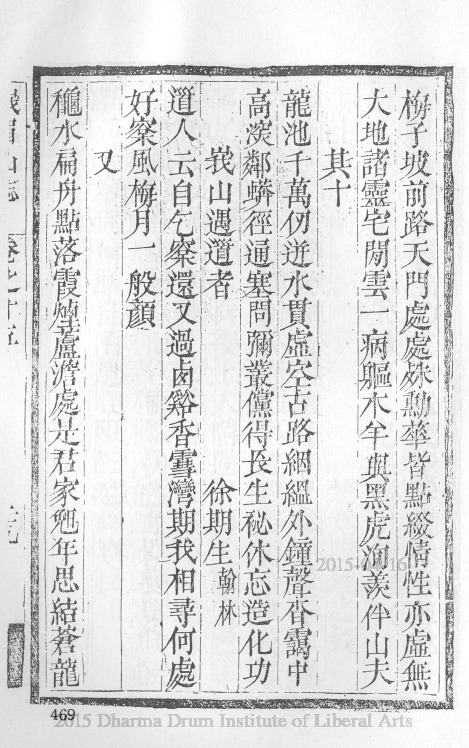 梅子坡前路天門處處殊動華皆點綴情性亦虛無
大地諸靈宅閒雲一病軀木羊與黑虎洵羨伴山夫
其十
龍池千萬仞迸水貫虛穴古路絪縕外鐘聲杳靄中
高深鄰蟒徑通塞問彌叢儻得長生祕休忘造化功
峩山遇道者
徐期生翰林
道人云自乞寮還又過卤谿香霏灣期我相尋何處
好寮風梅月一般顏
又
龝水扁舟點落霞煙蘆澹處是君家兜年思結蒼龍
峩眉山志
卷之十五
469
2015-04-16
2015 Dharma Drum Institute of Liberal Arts